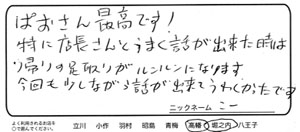 ぱおさん最高です!
特に店長さんとうまく話が出来た時は
帰りの足取りがルンルンになります
今回も少しながら話が出来てうれしかったです
ニックネーム こー
よく利用されるお店を
○で囲んでください。
立川 小作 羽村 昭島 青梅 高幡 堀之内 八王子